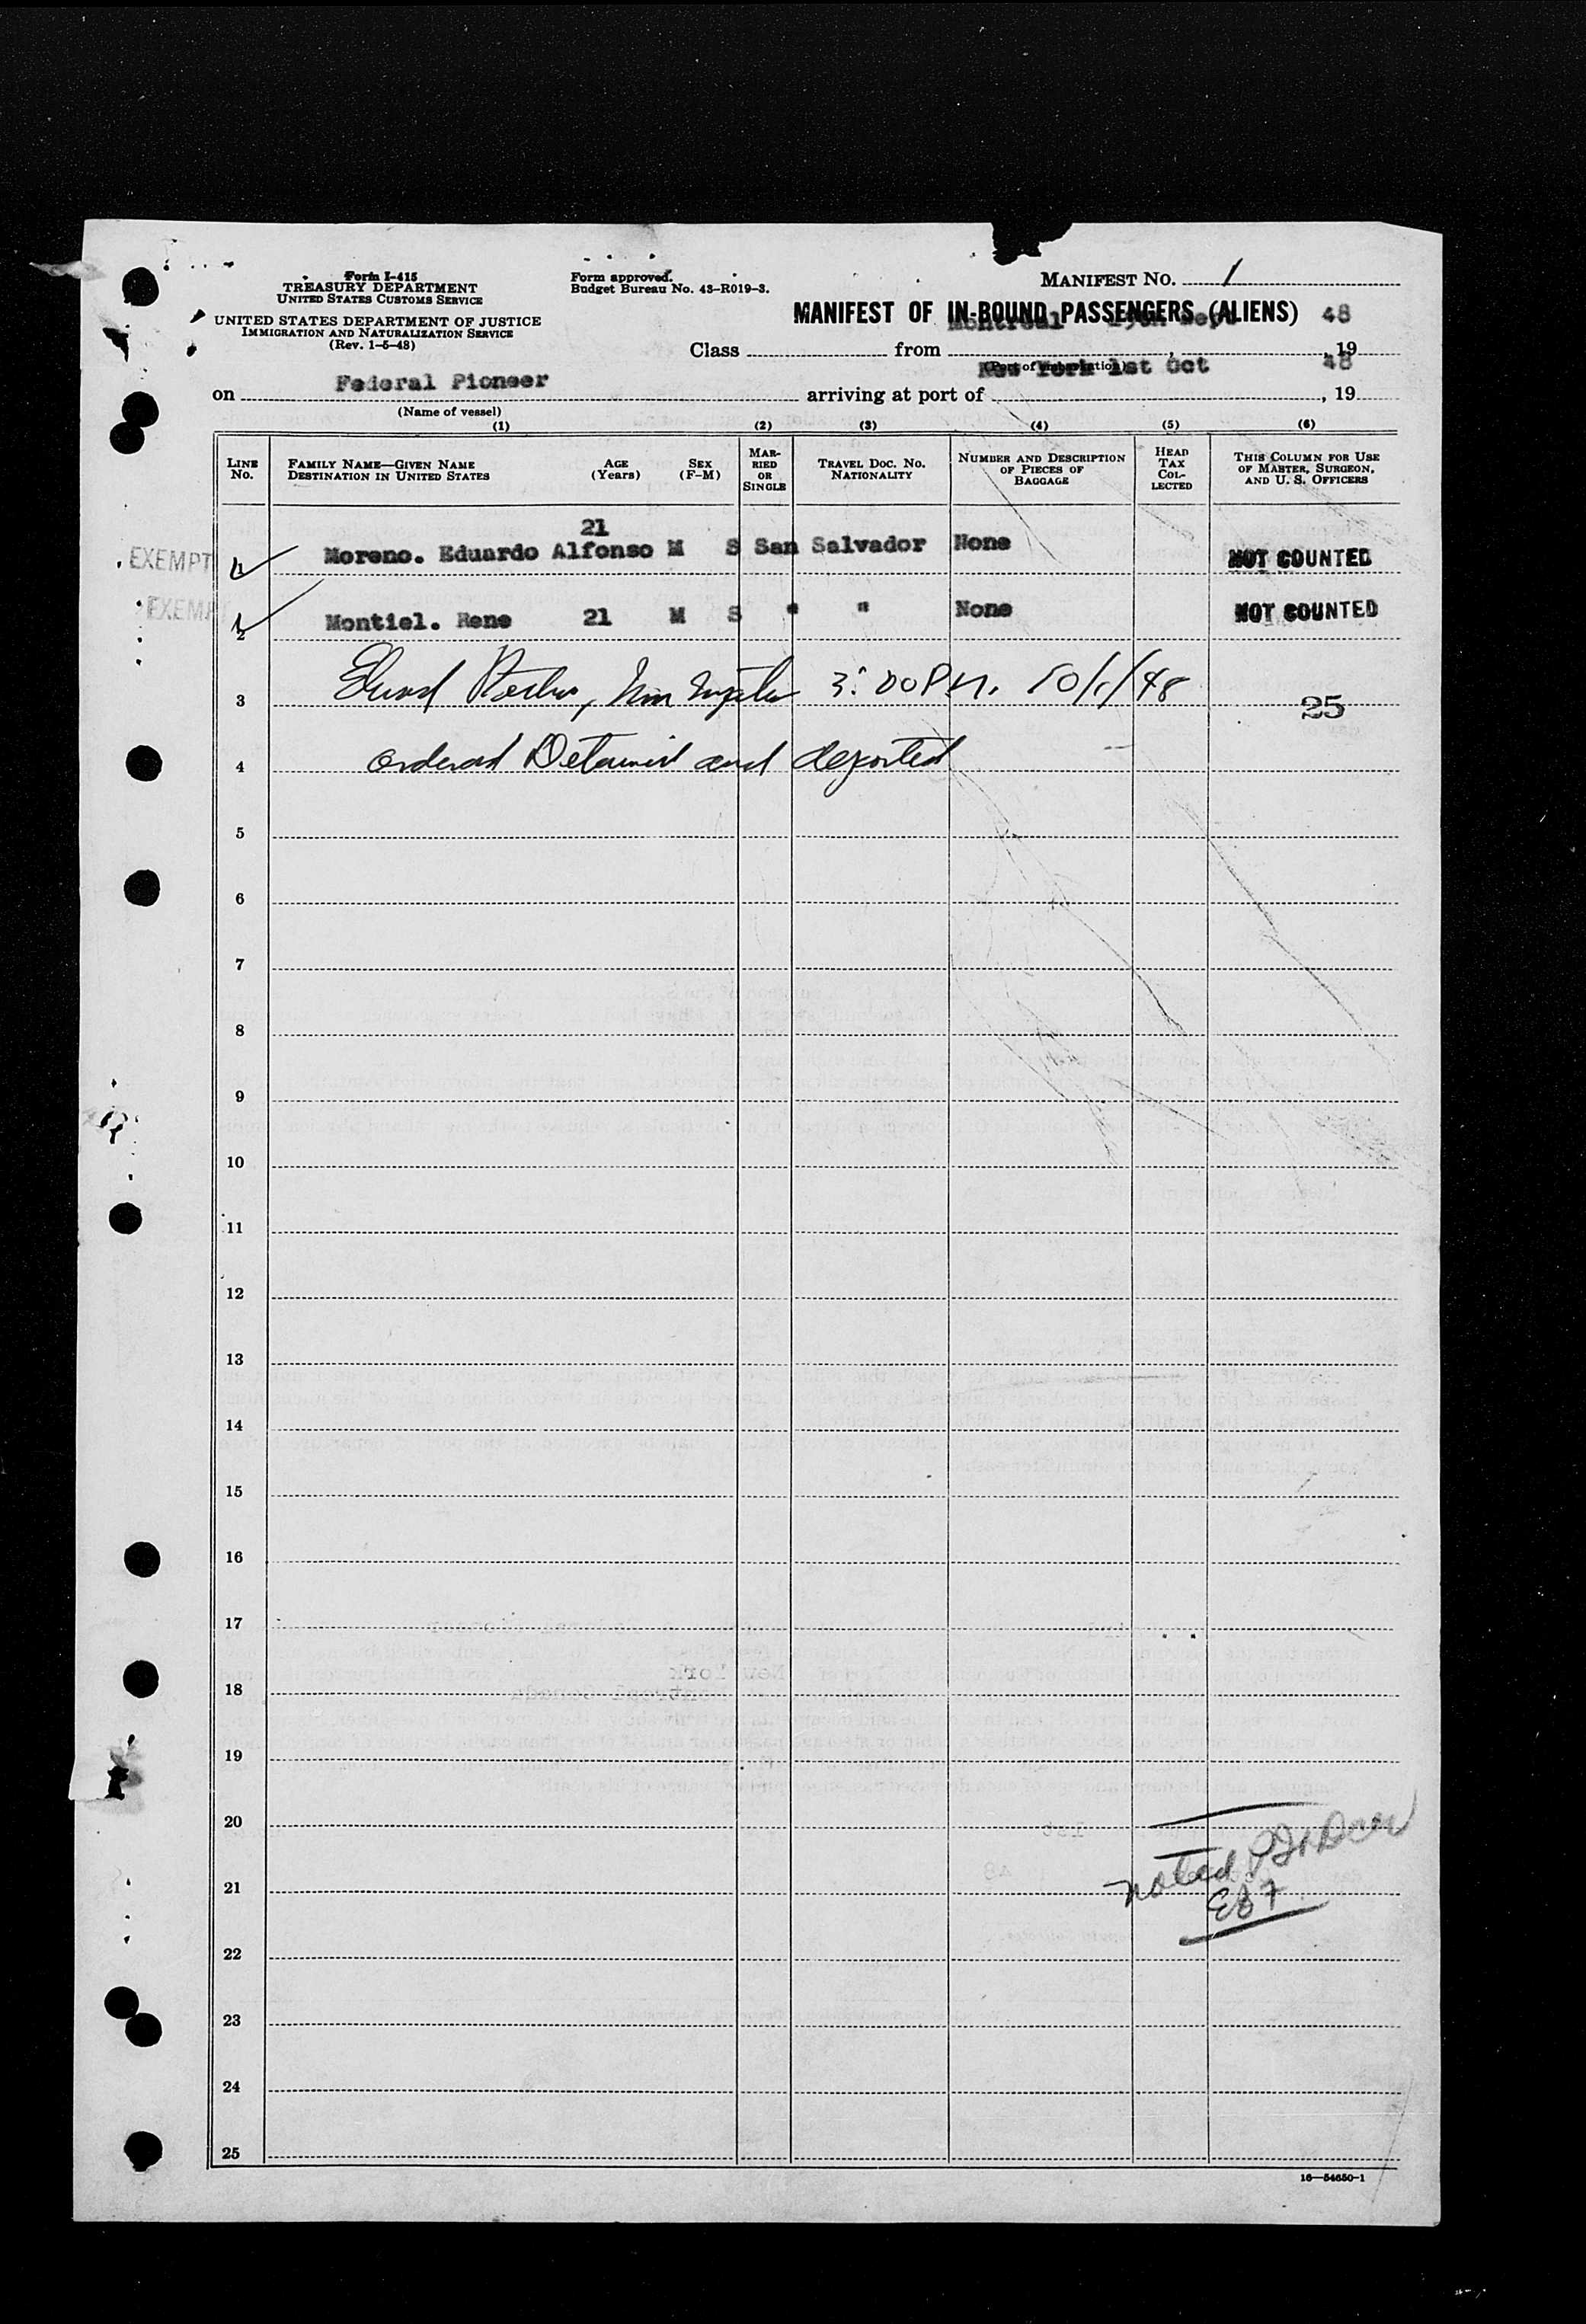 Form I-415
TREASURY DEPARTMENT
UNITED STATES CUSTOMS SERVICE
UNITED STATES DEPARTMENT OF JUSTICE
IMMIGRATION AND NATURALIZATION SERVICE
(Rev. 1-5-48)
Form approved.
Budget Bureau No. 43-R019-3.
MANIFEST NO. 1
MANIFEST OF IN-BOUND PASSENGERS (ALIENS)
Montreal Sept 48
Class from , 19
(Port of embarkation)
New York 1st Oct 48
on Federal Pioneer arriving at port of , 19
(Name of vessel)
(1) (2) (3) (4) (5) (6)
LINE NO.
FAMILY NAME—GIVEN NAME
DESTINATION IN UNITED STATES
AGE (Years)
SEX (F-M)
MARRIED OR SINGLE
TRAVEL DOC. NO.
NATIONALITY
NUMBER AND DESCRIPTION OF PIECES OF BAGGAGE
HEAD TAX COLLECTED
THIS COLUMN FOR USE OF MASTER, SURGEON, AND U. S. OFFICERS
21
EXEMPT 1 Moreno. Eduardo Alfonso M S San Salvador None NOT COUNTED
EXEMPT 2 Montiel. Rene 21 M S " " None NOT COUNTED
3 3:00 P.M. 10/1/48 25
4 ordered Detained and deported
5
6
7
8
9
10
11
12
13
14
15
16
17
18
19
20
21 noted
22
23
24
25
16—54650-1